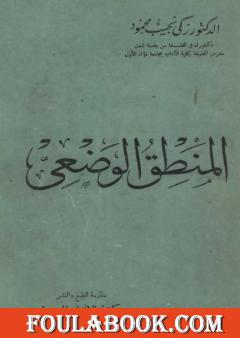 الدكتور زكى نجيب محمود
دكتوراه فى الفلسفة من جامعة لندن
مدرس الفلسفة بكلية الآداب بجامعة فؤاد الأول
المنطق الوضعى
ملتزمة الطبع والنشر
FOULABOOK.COM